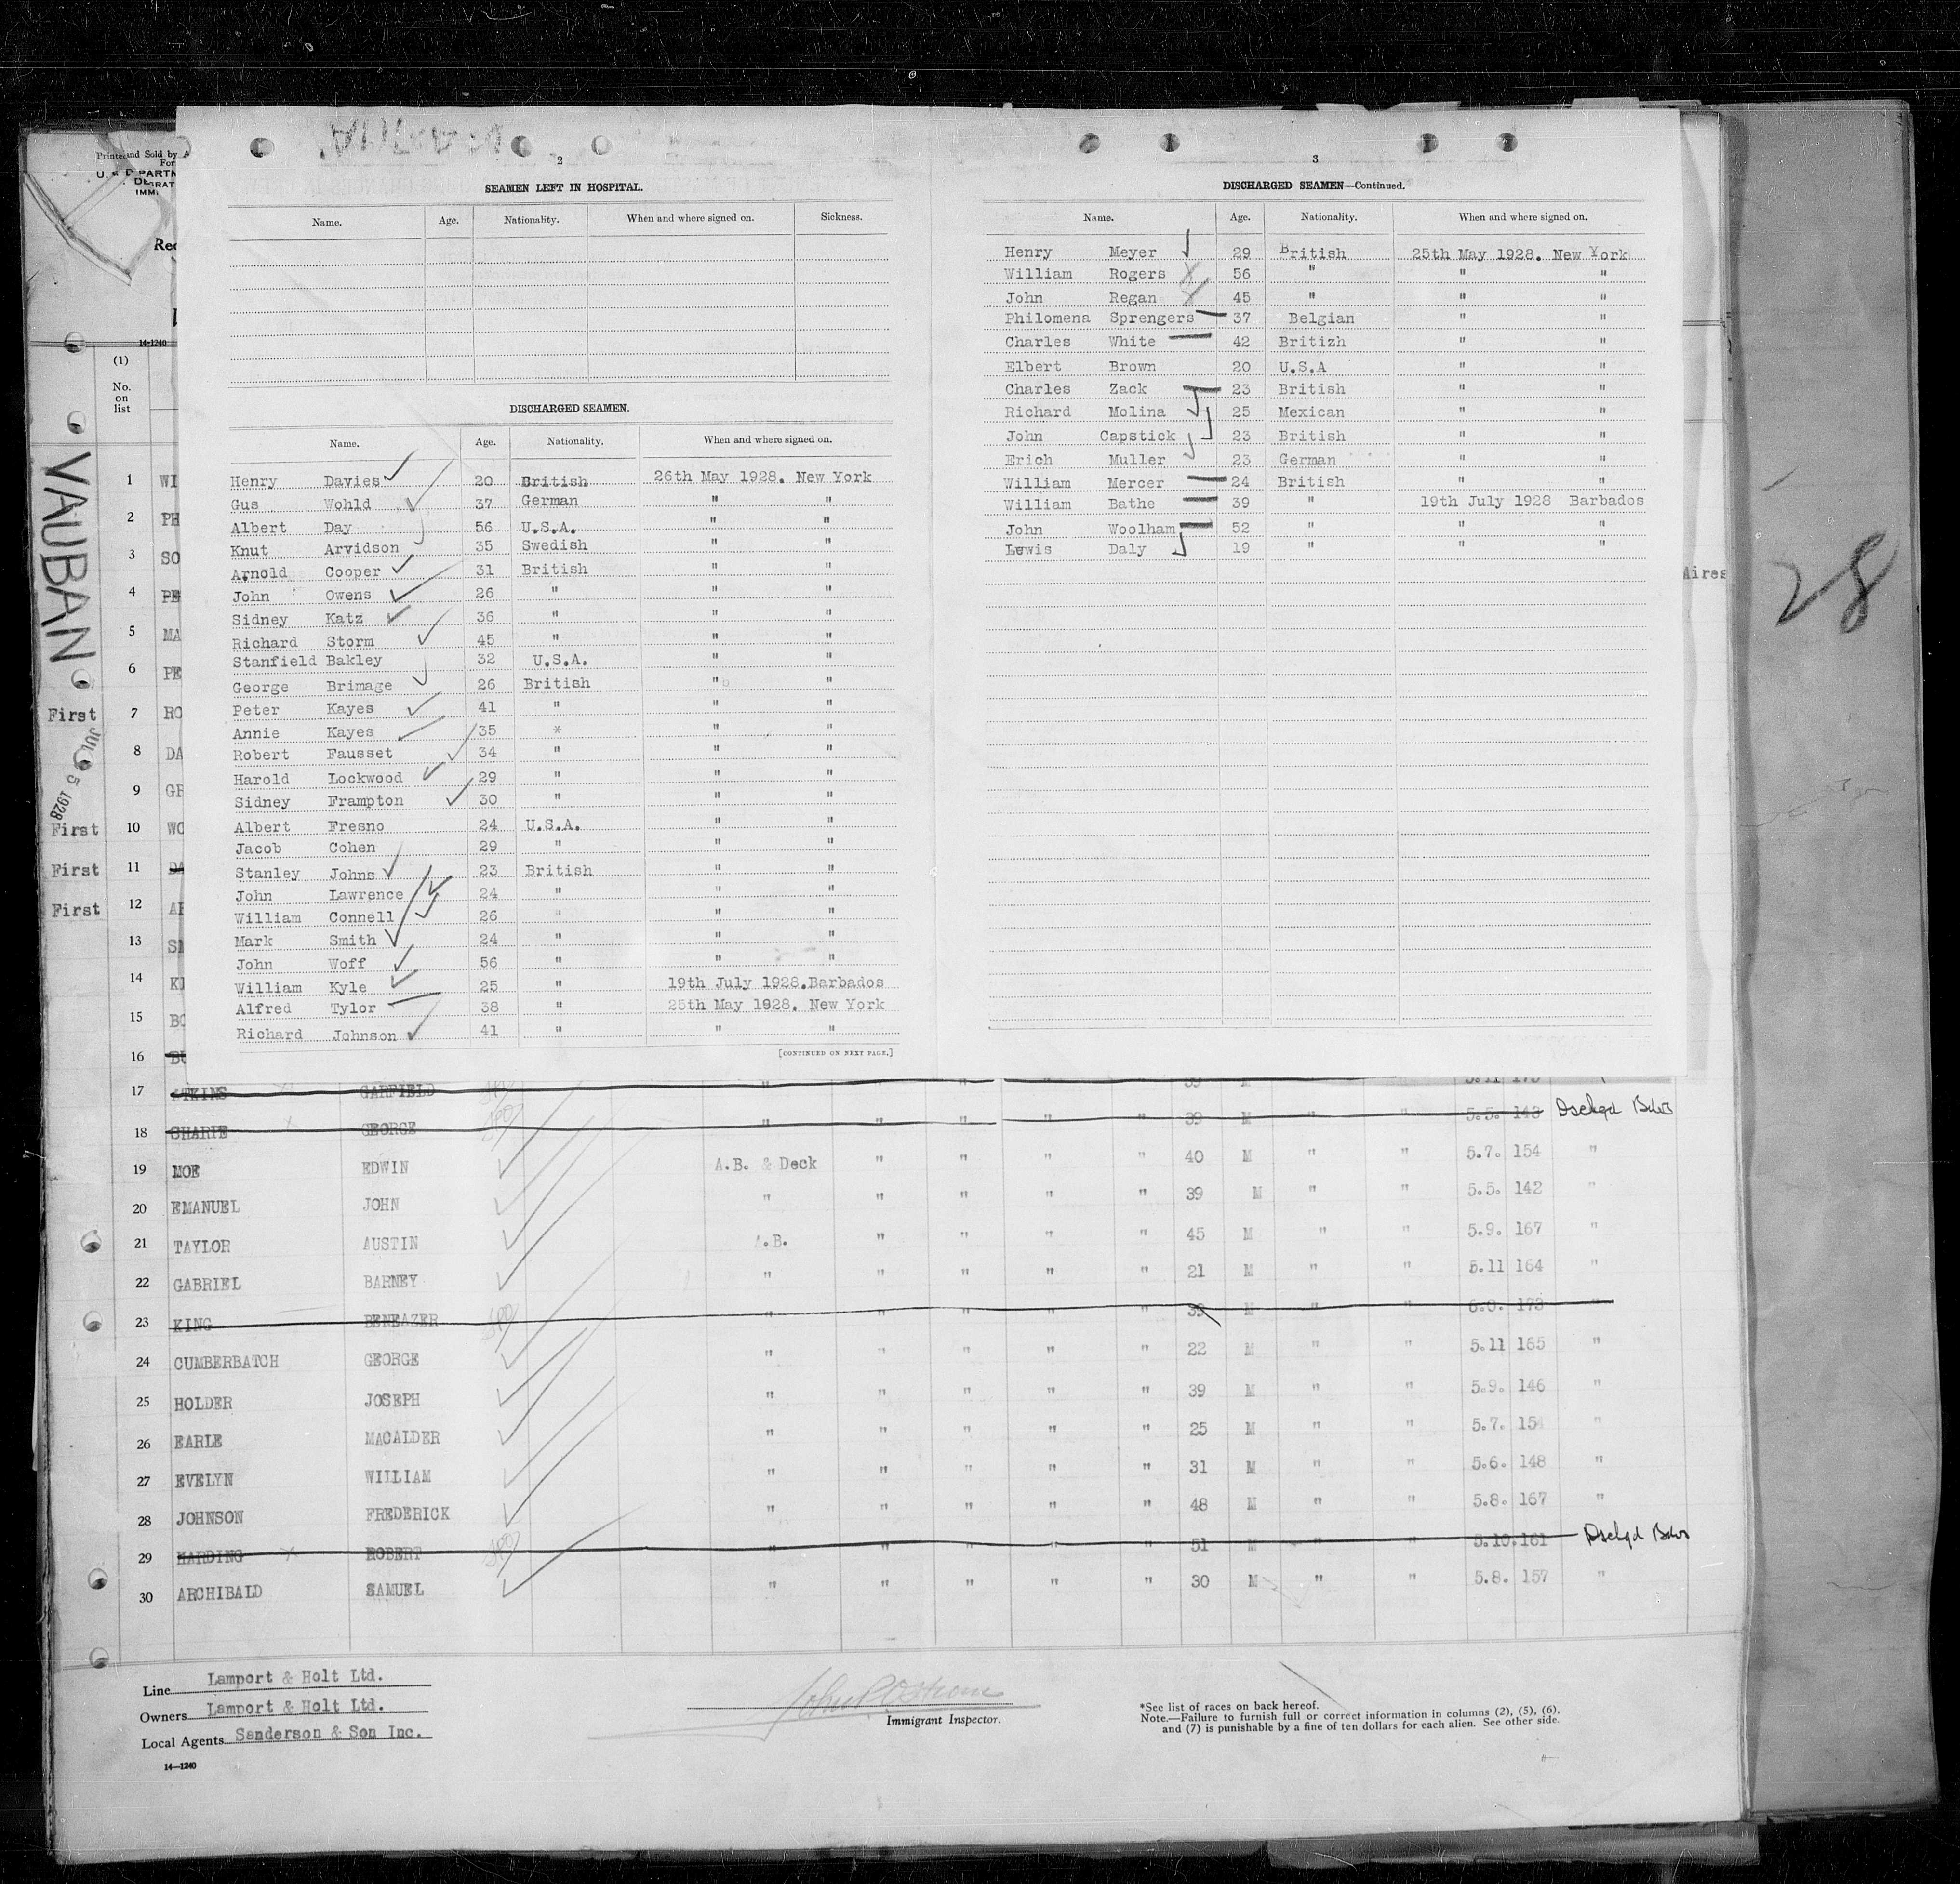 2
SEAMEN LEFT IN HOSPITAL.
Name. Age. Nationality. When and where signed on. Sickness.
DISCHARGED SEAMEN.
Name. Age. Nationality. When and where signed on.
Henry Davies 20 British 26th May 1928. New York
Gus Wohld 37 German " "
Albert Day 56 U.S.A. " "
Knut Arvidson 35 Swedish " "
Arnold Cooper 31 British " "
John Owens 26 " " "
Sidney Katz 36 " " "
Richard Storm 45 " " "
Stanfield Bakley 32 U.S.A. " "
George Brimage 26 British " "
Peter Kayes 41 " " "
Annie Kayes 35 * " "
Robert Fausset 34 " " "
Harold Lockwood 29 " " "
Sidney Frampton 30 " " "
Albert Fresno 24 U.S.A. " "
Jacob Cohen 29 " " "
Stanley Johns 23 British " "
John Lawrence 24 " " "
William Connell 26 " " "
Mark Smith 24 " " "
John Woff 56 " " "
William Kyle 25 " 19th July 1928.Barbados
Alfred Tylor 38 " 25th May 1928. New York
Richard Johnson 41 " " "
[CONTINUED ON NEXT PAGE.]
3
DISCHARGED SEAMEN—Continued.
Name. Age. Nationality. When and where signed on.
Henry Meyer 29 British 25th May 1928. New York
William Rogers 56 " " "
John Regan 45 " " "
Philomena Sprengers 37 Belgian " "
Charles White 42 Britizh " "
Elbert Brown 20 U.S.A " "
Charles Zack 23 British " "
Richard Molina 25 Mexican " "
John Capstick 23 British " "
Erich Muller 23 German " "
William Mercer 24 British " "
William Bathe 39 " 19th July 1928 Barbados
John Woolham 52 " " "
Lewis Daly 19 " " "
Printed and Sold by
U. S. DEPARTM
IMMI
Rec
14-1240
(1)
No.
on
list
VAUBAN
JUL 5 1928
28
Aires
1 WI
2 PH
3 SO
4 PE
5 MA
6 PE
First 7 RO
8 DA
9 GE
First 10 WO
First 11 DA
First 12
13
14
15 BO
16 BU
17 ATKINS GARFIELD " " " " " 39 M 5.11 173
18 SHARIE GEORGE " " " " " 39 M " " 5.5. 143 Dschgd Bdos
19 MOE EDWIN A.B. & Deck " " " " 40 M " " 5.7. 154 "
20 EMANUEL JOHN " " " " " 39 M " " 5.5. 142 "
21 TAYLOR AUSTIN A.B. " " " " 45 M " " 5.9. 167 "
22 GABRIEL BARNEY " " " " " 21 M " " 5.11 164 "
23 KING BENEAZER " " " " " 39 M " " 6.0. 173 "
24 CUMBERBATCH GEORGE " " " " " 22 M " " 5.11 165 "
25 HOLDER JOSEPH " " " " " 39 M " " 5.9. 146 "
26 EARLE MACALDER " " " " " 25 M " " 5.7. 154 "
27 EVELYN WILLIAM " " " " " 31 M " " 5.6. 148 "
28 JOHNSON FREDERICK " " " " " 48 M " " 5.8. 167 "
29 HARDING ROBERT " " " " " 51 M " " 5.10.161 Dschgd Bdos
30 ARCHIBALD SAMUEL " " " " " 30 M " " 5.8. 157 "
Line Lamport & Holt Ltd.
Owners Lamport & Holt Ltd.
Local Agents Sanderson & Son Inc.
14—1240
Immigrant Inspector.
*See list of races on back hereof.
Note.—Failure to furnish full or correct information in columns (2), (5), (6),
and (7) is punishable by a fine of ten dollars for each alien. See other side.